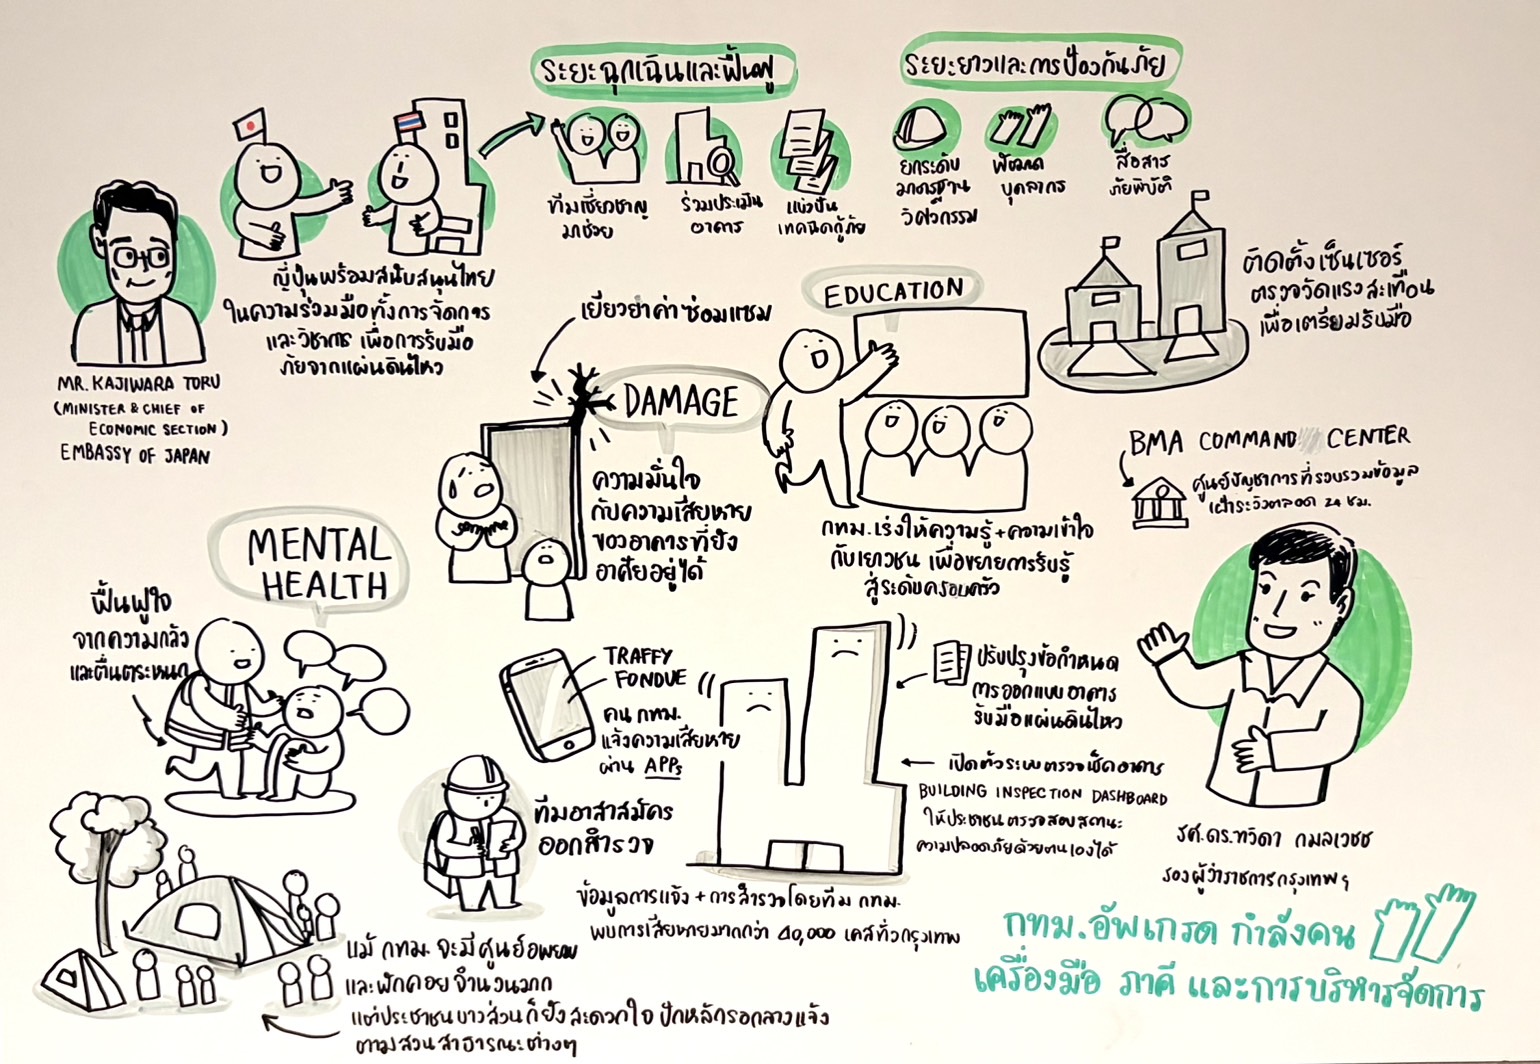 ระยะฉุกเฉินและฟื้นฟู
ทีมเชี่ยวชาญ
มาช่วย
ร่วมประเมิน
อาคาร
แบ่งปัน
เทคนิคกู้ภัย
ระยะยาวและการป้องกันภัย
ยกระดับ
มาตรฐาน
วิศวกรรม
พัฒนา
บุคลากร
สื่อสาร
ภัยพิบัติ
ญี่ปุ่นพร้อมสนับสนุนไทย
ในความร่วมมือทั้งการจัดการ
และวิชาการ เพื่อการรับมือ
ภัยจากแผ่นดินไหว
MR. KAJIWARA TORU
(MINISTER & CHIEF OF
ECONOMIC SECTION)
EMBASSY OF JAPAN
เยียวยาค่าซ่อมแซม
DAMAGE
ความมั่นใจ
กับความเสียหาย
ของอาคารที่ยัง
อาศัยอยู่ได้
EDUCATION
กทม.เร่งให้ความรู้+ความเข้าใจ
กับเยาวชน เพื่อขยายการรับรู้
สู่ระดับครอบครัว
ติดตั้งเซ็นเซอร์
ตรวจวัดแรงสะเทือน
เพื่อเตรียมรับมือ
BMA COMMAND CENTER
ศูนย์บัญชาการที่รวบรวมข้อมูล
เฝ้าระวังตลอด 24 ชม.
MENTAL
HEALTH
ฟื้นฟูใจ
จากความกลัว
และตื่นตระหนก
TRAFFY
FONDUE
คน กทม.
แจ้งความเสียหาย
ผ่าน APPs
ทีมอาสาสมัคร
ออกสำรวจ
ปรับปรุงข้อกำหนด
การออกแบบอาคาร
รับมือแผ่นดินไหว
เปิดตัวระบบตรวจเช็คอาคาร
BUILDING INSPECTION DASHBOARD
ให้ประชาชนตรวจสอบสถานะ
ความปลอดภัยด้วยตนเองได้
ข้อมูลการแจ้ง + การสำรวจโดยทีม กทม.
พบการเสียหายมากกว่า 40,000 เคสทั่วกรุงเทพ
รศ.ดร.ทวิดา กมลเวชช
รองผู้ว่าราชการกรุงเทพฯ
แม้ กทม. จะมีศูนย์อพยพ
และพักคอยจำนวนมาก
แต่ประชาชนบางส่วนก็ยังสะดวกใจ ปักหลักรอกลางแจ้ง
ตามสวนสาธารณะต่างๆ
กทม.อัพเกรด กำลังคน
เครื่องมือ ภาคี และการบริหารจัดการ